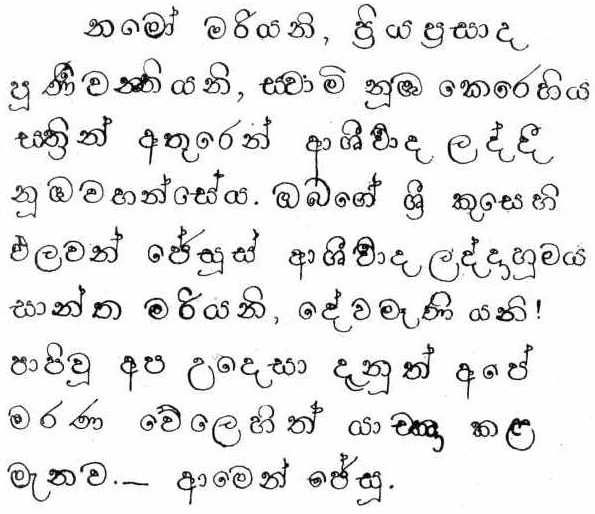 නමෝ මරියනි, ප්‍රිය ප්‍රසාද
පූර්ණවන්තියනි, ස්වාමි නුඹ කෙරෙහිය
ස්ත්‍රීන් අතුරෙන් ආශීර්වාද ලද්දී
නුඹ වහන්සේය. ඔබගේ ශ්‍රී කුසෙහි
ඵලවත් ජේසුස් ආශීර්වාද ලද්දාහුමය
සාන්ත මරියනි, දේවමෑණි යනි!
පාපිවූ අප උදෙසා දැනුත් අපේ
මරණ වේලෙහිත් යාච්ඤා කළ
මැනව.— ආමෙන් ජේසු.